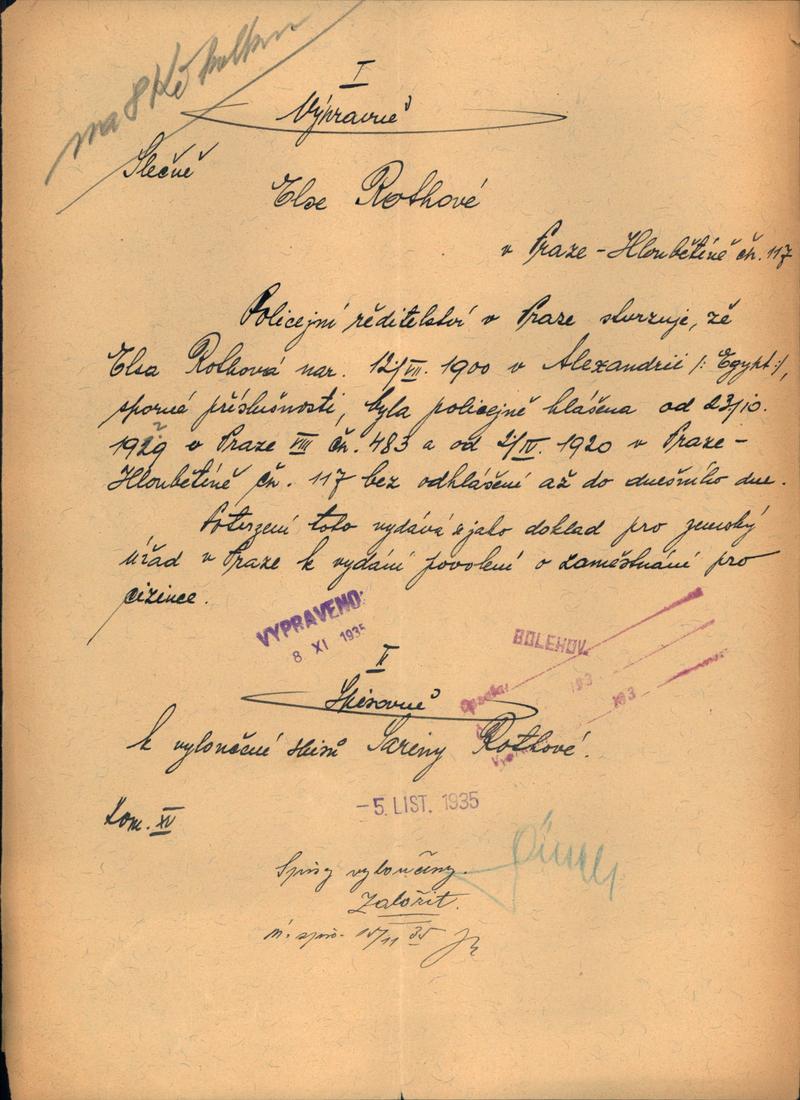 na 8 Kč kolkou
I
Výpravně
Slečně
Else Rothové
v Praze - Hloubětíně čh. 117
Policejní ředitelství v Praze stvrzuje, že
Elsa Rothová nar. 12/VII. 1900 v Alexandrii /: Egypt :/,
sporné příslušnosti, byla policejně hlášena od 23/10.
1929 v Praze VIII čh. 483 a od 2/IV. 1920 v Praze-
Hloubětíně čh. 117 bez odhlášení až do dnešního dne.
Potvrzení toto vydává se jako doklad pro zemský
úřad v Praze k vydání povolení o zaměstnání pro
cizince.
VYPRAVENO:
8 XI 1935
BOLEHOV.
Opsala:
193
193
II
Spisovně
k vyloučené spisů Sareny Rothové.
-5. LIST. 1935
Kom. XV
Spisy vyloučeny.
Založit.
15/11 35